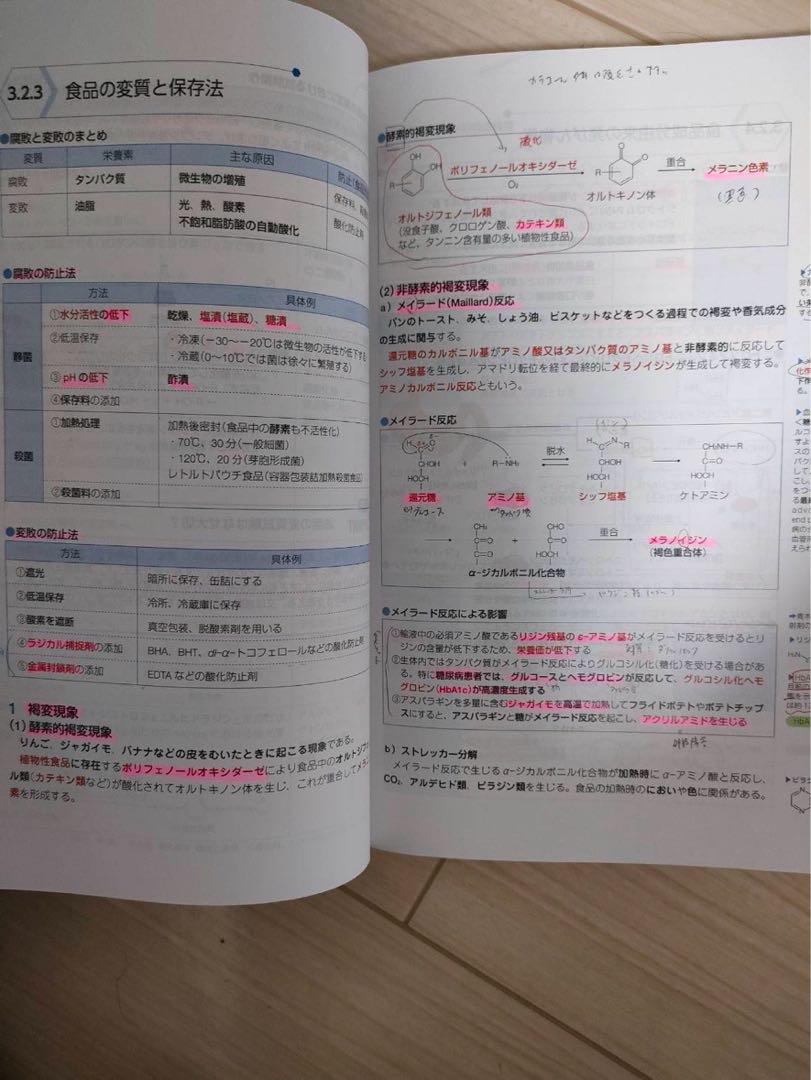 3.2.3 食品の変質と保存法
●腐敗と変敗のまとめ
変質 栄養素 主な原因 防止
腐敗 タンパク質 微生物の増殖 保存料、
変敗 油脂 光、熱、酸素
不飽和脂肪酸の自動酸化 酸化防止
●腐敗の防止法
方法 具体例
静菌
①水分活性の低下 乾燥、塩漬(塩蔵)、糖漬
②低温保存 ・冷凍(−30〜−20℃は微生物の活性が低下する
・冷蔵(0〜10℃では菌は徐々に繁殖する)
③pHの低下 酢漬
④保存料の添加
殺菌
①加熱処理 加熱後密封(食品中の酵素も不活性化)
・70℃、30分(一般細菌)
・120℃、20分(芽胞形成菌)
レトルトパウチ食品(容器包装詰加熱殺菌食品)
②殺菌料の添加
●変敗の防止法
方法 具体例
①遮光 暗所に保存、缶詰にする
②低温保存 冷所、冷蔵庫に保存
③酸素を遮断 真空包装、脱酸素剤を用いる
④ラジカル捕捉剤の添加 BHA、BHT、dl-α-トコフェロールなどの酸化防止
⑤金属封鎖剤の添加 EDTAなどの酸化防止剤
1 褐変現象
(1)酵素的褐変現象
りんご、ジャガイモ、バナナなどの皮をむいたときに起こる現象である。
植物性食品に存在するポリフェノールオキシダーゼにより食品中のオルトジフ
ル類(カテキン類など)が酸化されてオルトキノン体を生じ、これが重合してメラ
素を形成する。
●酵素的褐変現象
酸化
OH
OH
R
ポリフェノールオキシダーゼ
O₂
O
O
R
オルトキノン体
重合
メラニン色素
(黒色)
オルトジフェノール類
(没食子酸、クロロゲン酸、カテキン類
など、タンニン含有量の多い植物性食品)
(2)非酵素的褐変現象
a)メイラード(Maillard)反応
パンのトースト、みそ、しょう油、ビスケットなどをつくる過程での褐変や香気成分
の生成に関与する。
還元糖のカルボニル基がアミノ酸又はタンパク質のアミノ基と非酵素的に反応して
シッフ塩基を生成し、アマドリ転位を経て最終的にメラノイジンが生成して褐変する。
アミノカルボニル反応ともいう。
●メイラード反応
H O
C
CHOH
HOCH
還元糖
+
R−NH₂
アミノ基
脱水
H N−R
C
CHOH
HOCH
シッフ塩基
CH₂NH−R
C=O
HOCH
ケトアミン
CH₃
C=O
C=O
+
CHO
C=O
HOCH
α-ジカルボニル化合物
重合
メラノイジン
(褐色重合体)
●メイラード反応による影響
①輸液中の必須アミノ酸であるリジン残基のε-アミノ基がメイラード反応を受けるとリ
ジンの含量が低下するため、栄養価が低下する
②生体内ではタンパク質がメイラード反応によりグルコシル化(糖化)を受ける場合があ
る。特に糖尿病患者では、グルコースとヘモグロビンが反応して、グルコシル化ヘモ
グロビン(HbA1c)が高濃度生成する
③アスパラギンを多量に含むジャガイモを高温で加熱してフライドポテトやポテトチップ
スにすると、アスパラギンと糖がメイラード反応を起こし、アクリルアミドを生じる
b)ストレッカー分解
メイラード反応で生じるα-ジカルボニル化合物が加熱時にα-アミノ酸と反応し、
CO₂、アルデヒド類、ピラジン類を生じる。食品の加熱時のにおいや色に関係がある。